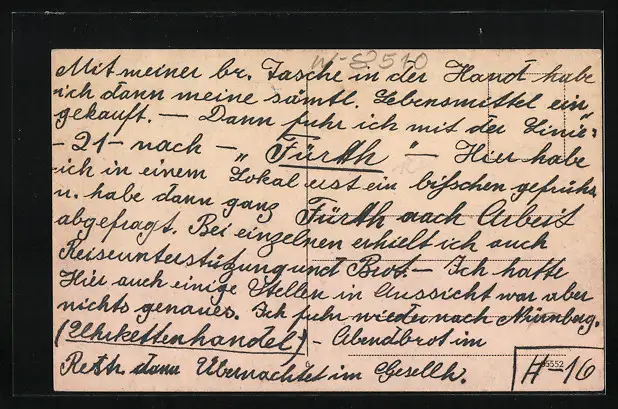 W-S2510
Mit meiner br. Tasche in der Hand habe
ich dann meine sämtl. Lebensmittel ein=
gekauft. — Dann fuhr ich mit der Linie:
- 21 - nach - „Fürth" — Hier habe
ich in einem Lokal erst ein bisschen gefrühs.
u. habe dann ganz Fürth nach Arbeit
abgefragt. Bei einzelnen erhielt ich auch
Reiseunterstützung und Brot. — Ich hatte
Hier auch einige Stellen in Aussicht war aber
nichts genaues. Ich fuhr wieder nach Nürnberg.
(Uhrkettenhandel) - Abendbrot im
dann Übernachtet im Gesellh.
H-16